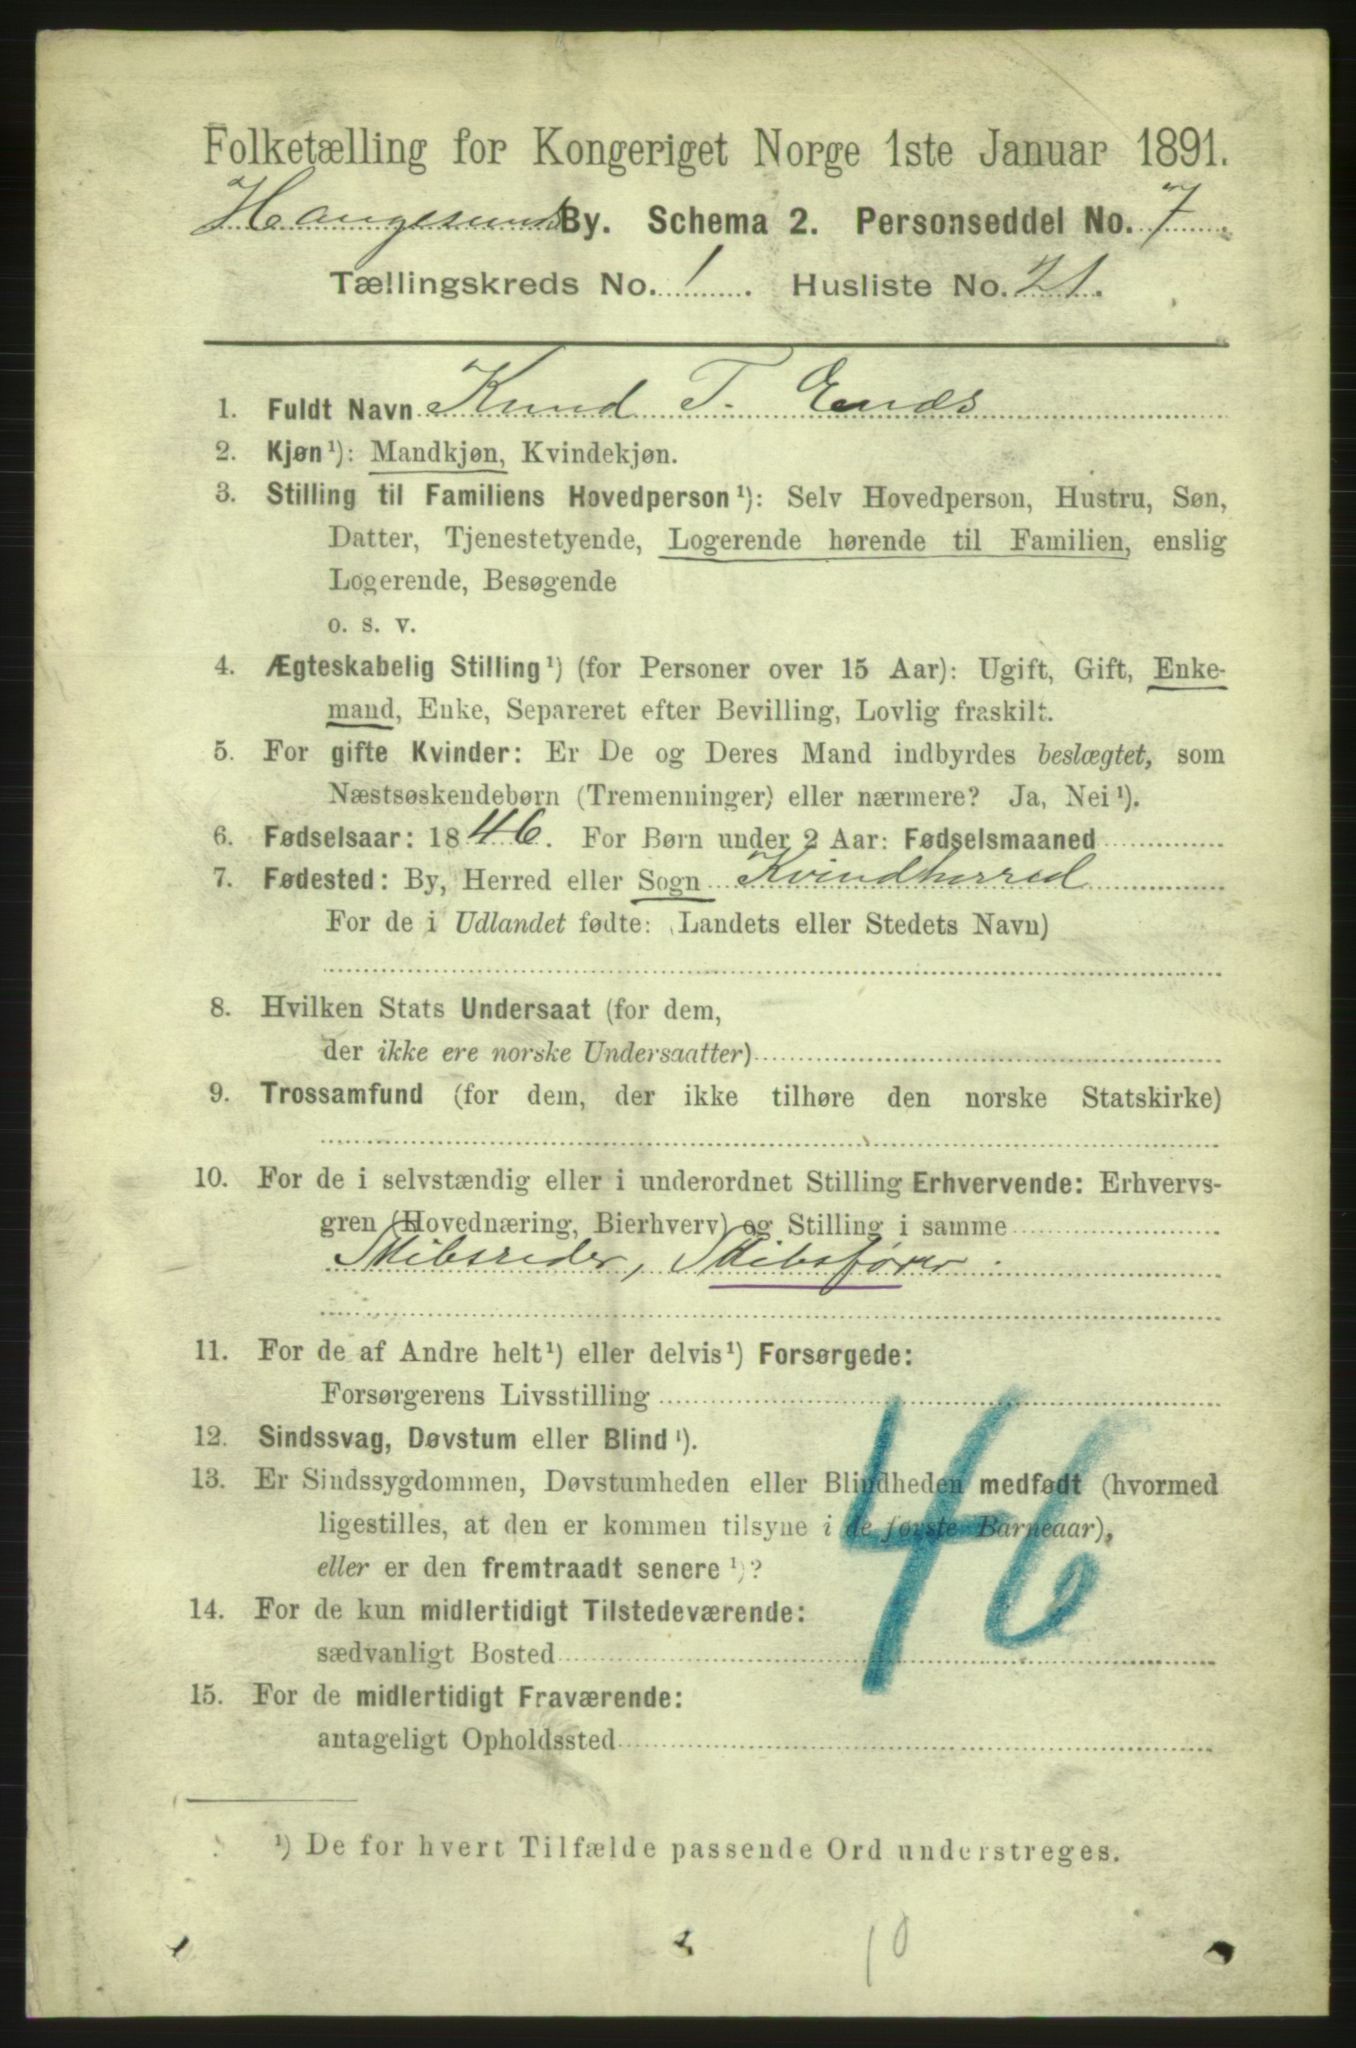 Folketælling for Kongeriget Norge 1ste Januar 1891.
Haugesunds By. Schema 2. Personseddel No. 7.
Tællingskreds No. 1. Husliste No. 21.
1. Fuldt Navn Knud T. Enæs
2. Kjøn¹): Mandkjøn, Kvindekjøn.
3. Stilling til Familiens Hovedperson¹): Selv Hovedperson, Hustru, Søn,
Datter, Tjenestetyende, Logerende hørende til Familien, enslig
Logerende, Besøgende
o. s. v.
4. Ægteskabelig Stilling¹) (for Personer over 15 Aar): Ugift, Gift, Enke-
mand, Enke, Separeret efter Bevilling, Lovlig fraskilt.
5. For gifte Kvinder: Er De og Deres Mand indbyrdes beslægtet, som
Næstsøskendebørn (Tremenninger) eller nærmere? Ja, Nei¹).
6. Fødselsaar: 1846. For Børn under 2 Aar: Fødselsmaaned
7. Fødested: By, Herred eller Sogn Kvindherred
For de i Udlandet fødte: (Landets eller Stedets Navn)
8. Hvilken Stats Undersaat (for dem,
der ikke ere norske Undersaatter)
9. Trossamfund (for dem, der ikke tilhøre den norske Statskirke)
10. For de i selvstændig eller i underordnet Stilling Erhvervende: Erhvervs-
gren (Hovednæring, Bierhverv) og Stilling i samme
Skibsreder, Skibsfører.
11. For de af Andre helt¹) eller delvis¹) Forsørgede:
Forsørgerens Livsstilling
12. Sindssvag, Døvstum eller Blind¹).
13. Er Sindssygdommen, Døvstumheden eller Blindheden medfødt (hvormed
ligestilles, at den er kommen tilsyne i de første Barneaar),
eller er den fremtraadt senere¹)?
46
14. For de kun midlertidigt Tilstedeværende:
sædvanligt Bosted
15. For de midlertidigt Fraværende:
antageligt Opholdssted
¹) De for hvert Tilfælde passende Ord understreges.
10